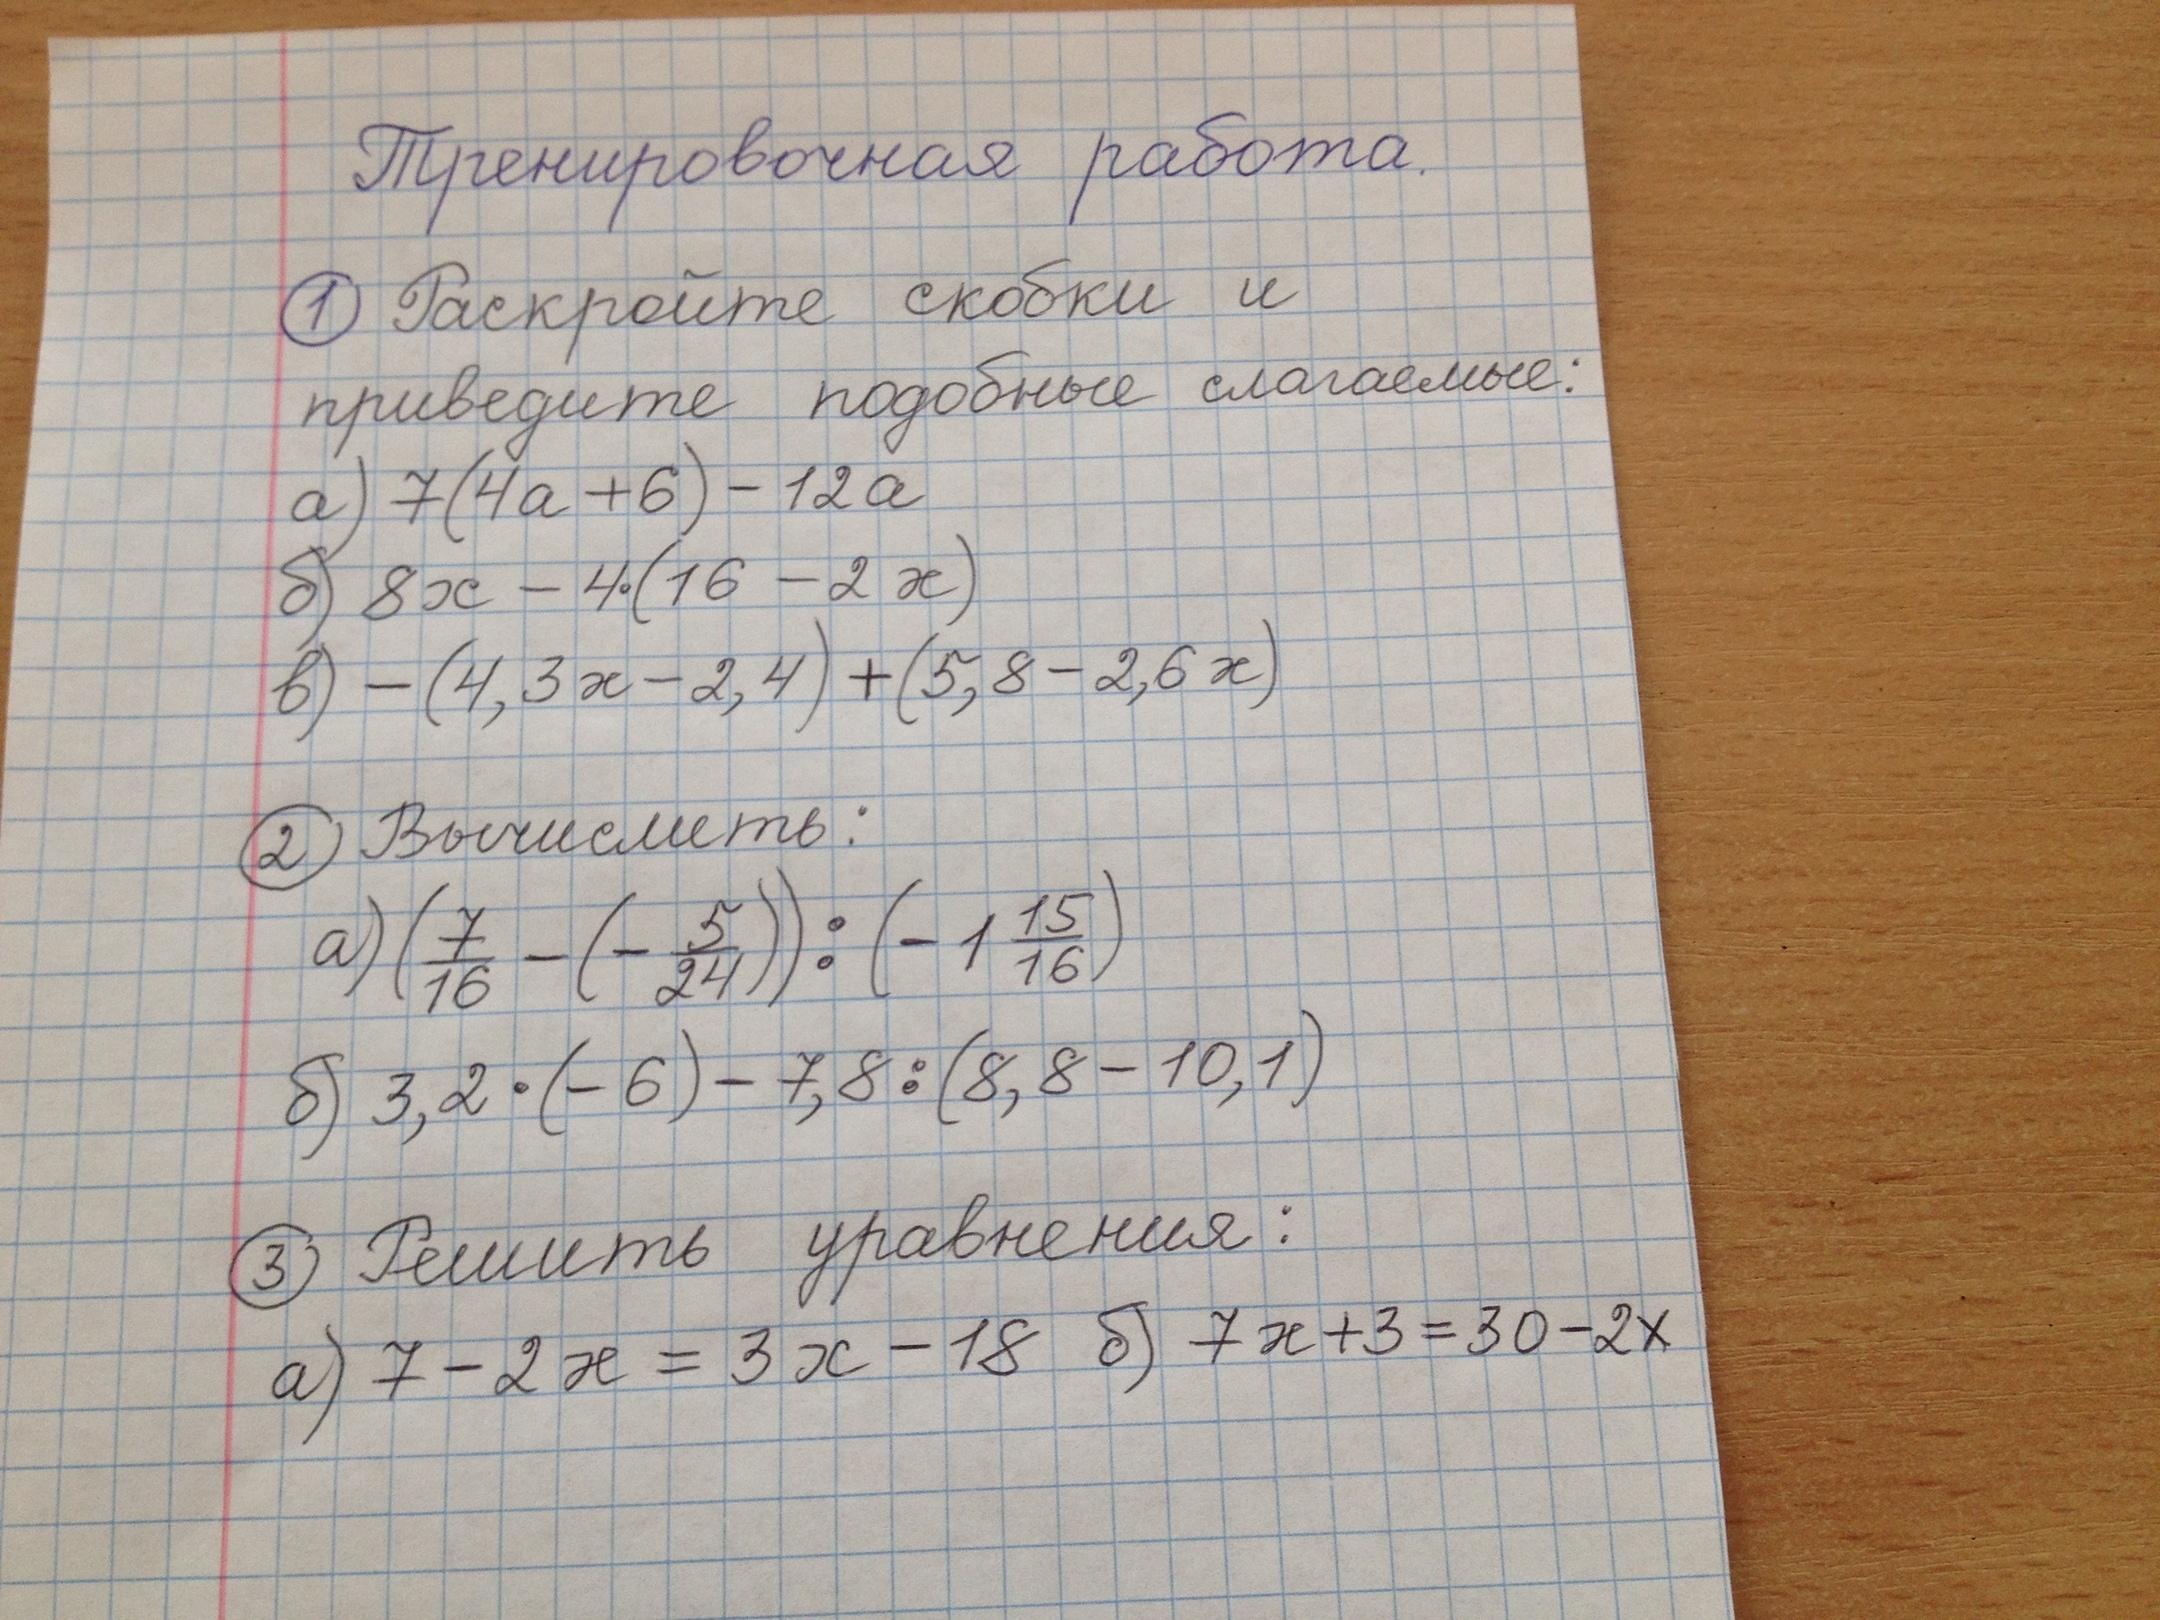 Тренировочная работа.
① Раскройте скобки и
приведите подобные слагаемые:
а) 7(4а+6)-12а
б) 8х-4·(16-2х)
в) -(4,3х-2,4)+(5,8-2,6х)
② Вычислить:
а) (7/16-(-5/24)):(-1 15/16)
б) 3,2·(-6)-7,8:(8,8-10,1)
③ Решить уравнения:
а) 7-2х=3х-18 б) 7х+3=30-2х